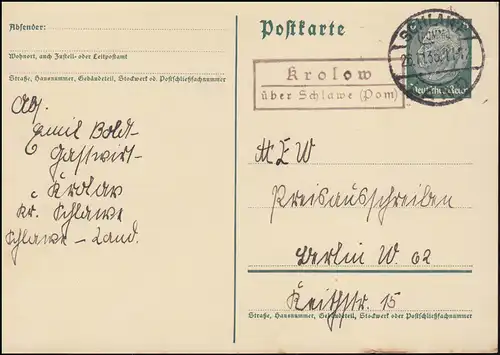 Absender:
Wohnort, auch Zustell- oder Leitpostamt
Straße, Hausnummer, Gebäudeteil, Stockwerk od. Postschließfachnummer
Abs.
Emil Boldt
Gastwirt
Krolow
Kr. Schlawe
Schlawe-Land.
Postkarte
SCHLAWE
Deutsches Reich
Krolow
über Schlawe (Pom)
MEW
Preisausschreiben
Berlin W. 62
Keithstr. 15
Straße, Hausnummer, Gebäudeteil, Stockwerk oder Postschließfachnummer